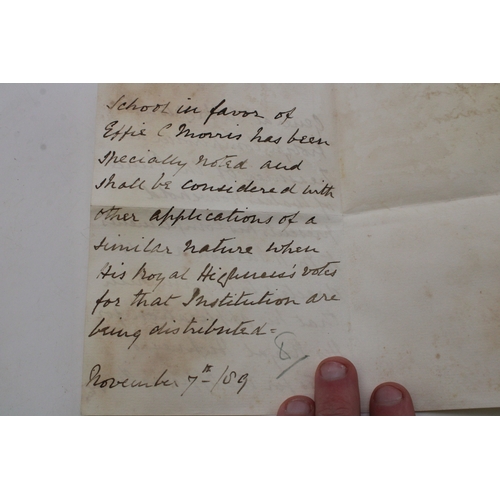 School in favor of
Effie C Morris has been
specially noted and
shall be considered with
other applications of a
similar nature when
His Royal Highness's votes
for that Institution are
being distributed.
November 7th /89